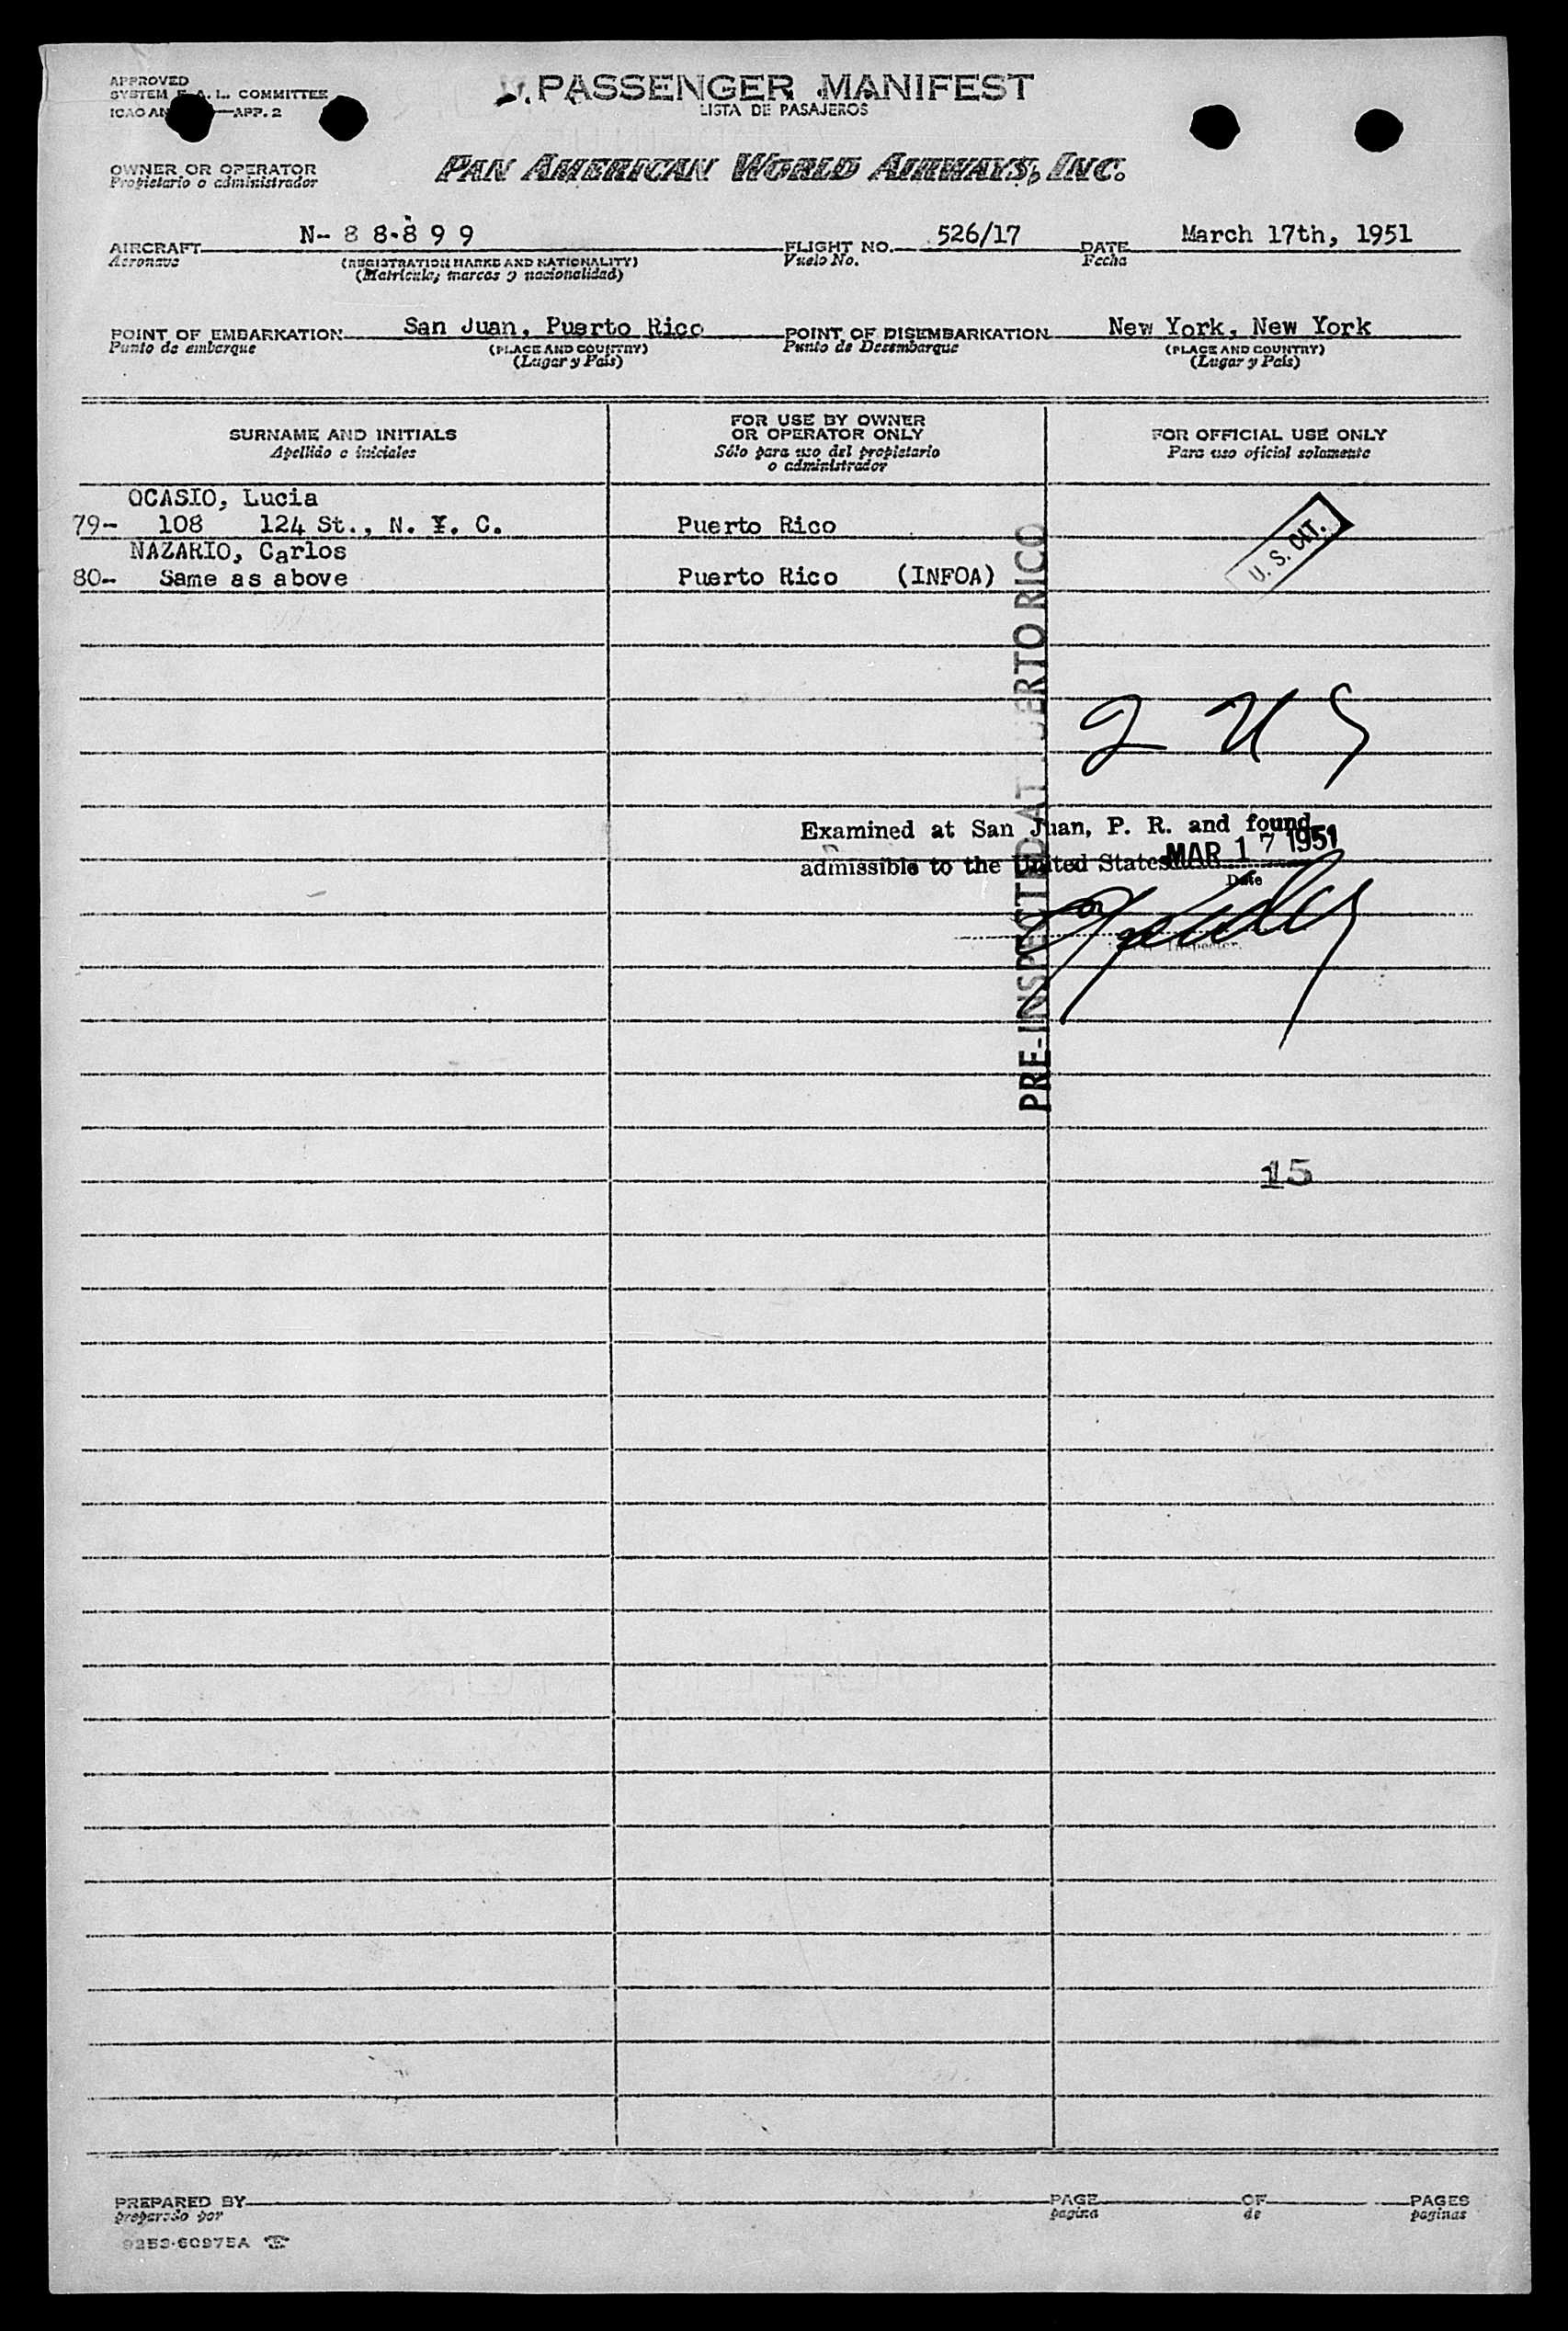 APPROVED
SYSTEM F. A. L. COMMITTEE
ICAO AN APP. 2
PASSENGER MANIFEST
LISTA DE PASAJEROS
OWNER OR OPERATOR
Propietario o administrador
PAN AMERICAN WORLD AIRWAYS, INC.
AIRCRAFT N- 8 8-8 9 9 FLIGHT NO. 526/17 DATE March 17th, 1951
Aeronave (REGISTRATION MARKS AND NATIONALITY) Vuelo No. Fecha
(Matrícula, marcas y nacionalidad)
POINT OF EMBARKATION San Juan, Puerto Rico POINT OF DISEMBARKATION New York, New York
Punto de embarque (PLACE AND COUNTRY) Punto de Desembarque (PLACE AND COUNTRY)
(Lugar y País) (Lugar y País)
SURNAME AND INITIALS
Apellido e iniciales
FOR USE BY OWNER
OR OPERATOR ONLY
Sólo para uso del propietario
o administrador
FOR OFFICIAL USE ONLY
Para uso oficial solamente
OCASIO, Lucia
79- 108 124 St., N. Y. C. Puerto Rico
NAZARIO, Carlos
80- Same as above Puerto Rico (INFOA)
U. S. CIT.
PRE-INSPECTED AT PUERTO RICO
2 US
Examined at San Juan, P. R. and found
admissible to the United States MAR 17 1951
Date
Inspector.
15
PREPARED BY PAGE OF PAGES
preparado por pagina de paginas
9253-60975A